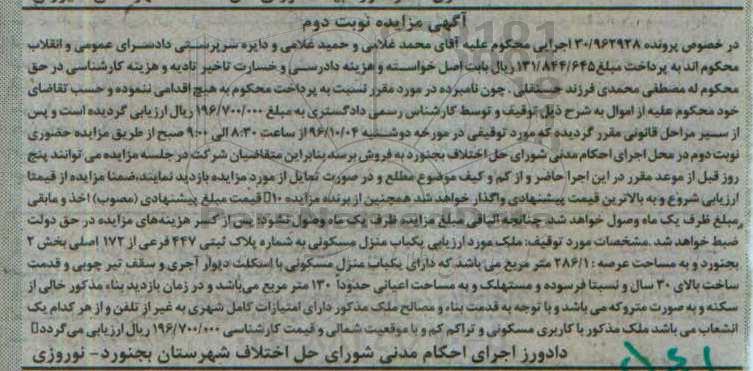 آگهی مزایده نوبت دوم
در خصوص پرونده ۳۰/۹۶۲۹۲۸ اجرایی محکوم علیه آقای محمد غلامی و حمید غلامی و دایره سرپرستی دادسرای عمومی و انقلاب
محکوم اند به پرداخت مبلغ ۱۳۱/۸۴۴/۶۴۵ ریال بابت اصل خواسته و هزینه دادرسی و خسارت تاخیر تادیه و هزینه کارشناسی در حق
محکوم له مصطفی محمدی فرزند حسینقلی . چون نامبرده در مورد مقرر نسبت به پرداخت محکوم به هیچ اقدامی ننموده و حسب تقاضای
خود محکوم علیه از اموال به شرح ذیل توقیف و توسط کارشناس رسمی دادگستری به مبلغ ۱۹۶/۷۰۰/۰۰۰ ریال ارزیابی گردیده است و پس
از سیر مراحل قانونی مقرر گردیده که مورد توقیفی در مورخه دوشنبه ۹۶/۱۰/۰۴ از ساعت ۸:۳۰ الی ۹:۰۰ صبح از طریق مزایده حضوری
نوبت دوم در محل اجرای احکام مدنی شورای حل اختلاف بجنورد به فروش برسد بنابراین متقاضیان شرکت در جلسه مزایده می توانند پنج
روز قبل از موعد مقرر در این اجرا حاضر و از کم و کیف موضوع مطلع و در صورت تمایل از مورد مزایده بازدید نمایند،ضمنا مزایده از قیمتا
ارزیابی شروع و به بالاترین قیمت پیشنهادی واگذار خواهد شد همچنین از برنده مزایده ۱۰٪ قیمت مبلغ پیشنهادی (مصوب) اخذ و مابقی
مبلغ ظرف یک ماه وصول خواهد شد چنانچه الباقی مبلغ مزایده ظرف یک ماه وصول نشود پس از کسر هزینه‌های مزایده در حق دولت
ضبط خواهد شد .مشخصات مورد توقیف: ملک مورد ارزیابی یکباب منزل مسکونی به شماره پلاک ثبتی ۴۴۷ فرعی از ۱۷۲ اصلی بخش ۲
بجنورد و به مساحت عرصه : ۲۸۶/۱ متر مربع می باشد که دارای یکباب منزل مسکونی با اسکلت دیوار آجری و سقف تیر چوبی و قدمت
ساخت بالای ۳۰ سال و نسبتا فرسوده و مستهلک و به مساحت اعیانی حدوداً ۱۳۰ متر مربع می‌باشد و در زمان بازدید بناء مذکور خالی از
سکنه و به صورت متروکه می باشد و با توجه به قدمت بناء و مصالح ملک مذکور دارای امتیازات کامل شهری به غیر از تلفن و از هر کدام یک
انشعاب می باشد ملک مذکور با کاربری مسکونی و تراکم کم و با موقعیت شمالی و قیمت کارشناسی ۱۹۶/۷۰۰/۰۰۰ ریال ارزیابی می گردد
دادورز اجرای احکام مدنی شورای حل اختلاف شهرستان بجنورد - نوروزی